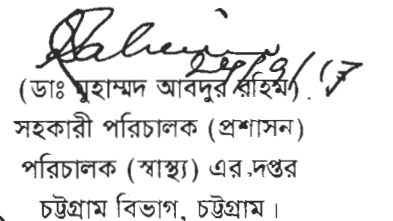 (ডাঃ মুহাম্মদ আবদুর রহিম)
সহকারী পরিচালক (প্রশাসন)
পরিচালক (স্বাস্থ্য) এর দপ্তর
চট্টগ্রাম বিভাগ, চট্টগ্রাম।